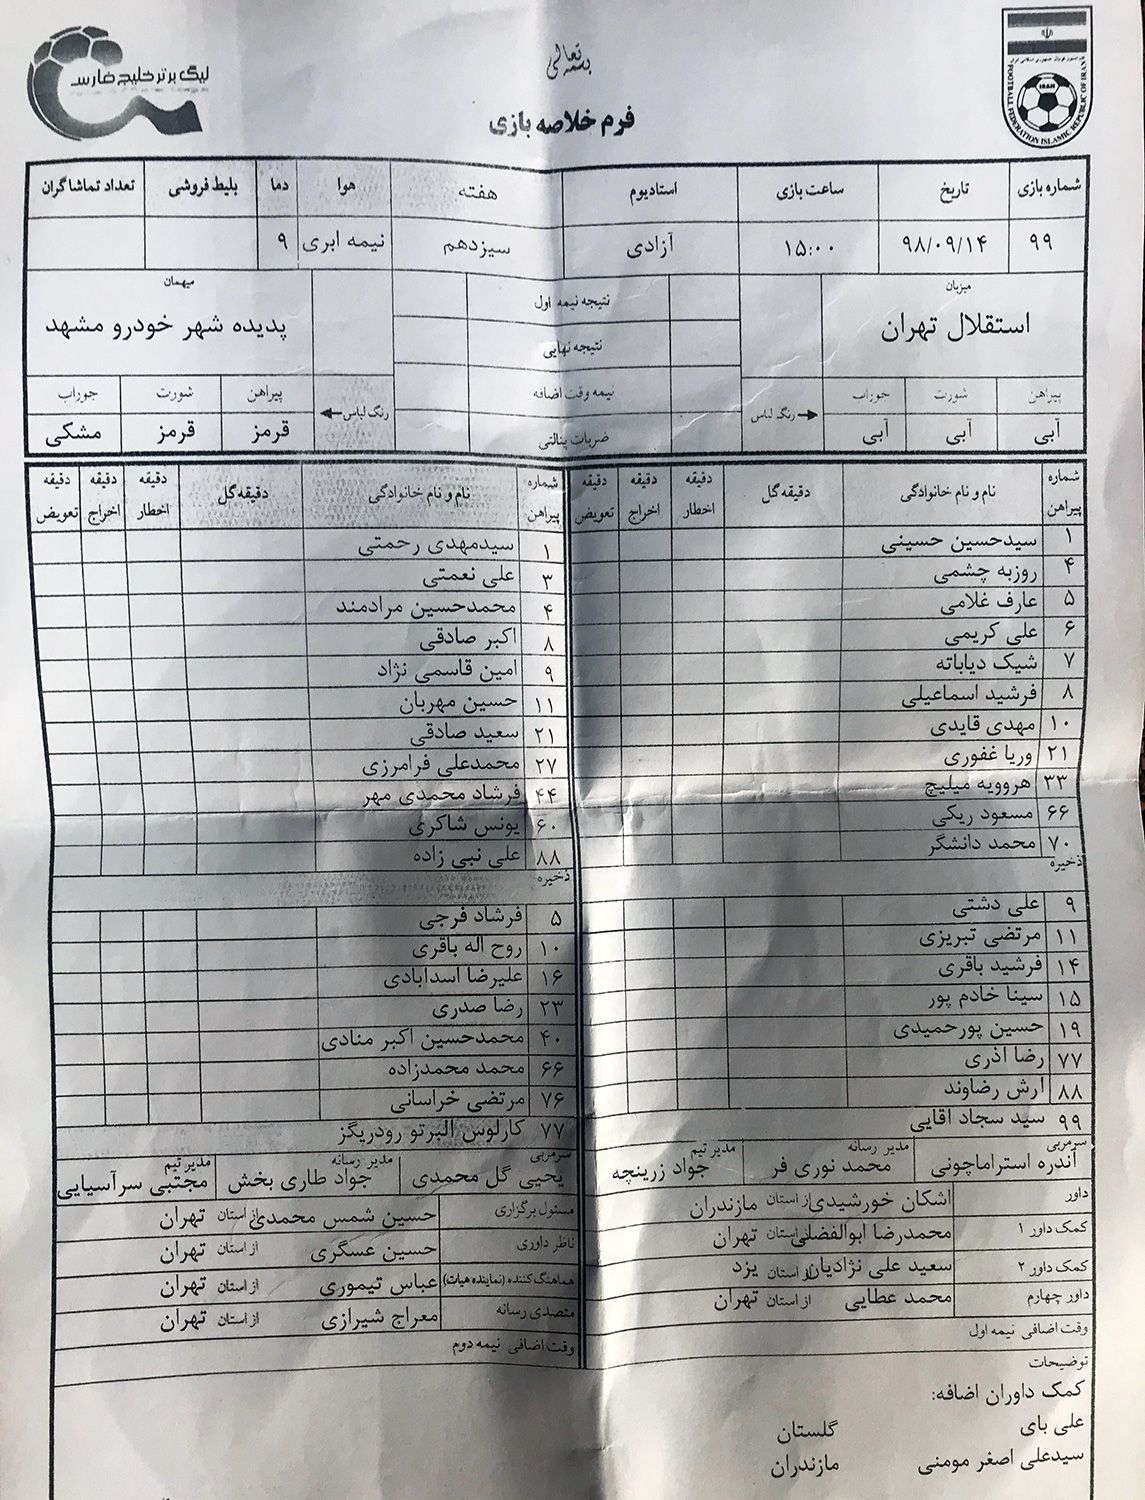 بسمه تعالی
لیگ برتر خلیج فارس
IRAN
FOOTBALL FEDERATION ISLAMIC REPUBLIC OF IRAN
فرم خلاصه بازی
شماره بازی تاریخ ساعت بازی استادیوم هفته هوا دما بلیط فروشی تعداد تماشاگران
۹۹ ۹۸/۰۹/۱۴ ۱۵:۰۰ آزادی سیزدهم نیمه ابری ۹
میزبان نتیجه نیمه اول میهمان
استقلال تهران نتیجه نهایی پدیده شهر خودرو مشهد
پیراهن شورت جوراب رنگ لباس نیمه وقت اضافه رنگ لباس پیراهن شورت جوراب
آبی آبی آبی ضربات پنالتی قرمز قرمز مشکی
شماره پیراهن نام و نام خانوادگی دقیقه گل دقیقه اخطار دقیقه اخراج دقیقه تعویض
۱ سیدحسین حسینی
۴ روزبه چشمی
۵ عارف غلامی
۶ علی کریمی
۷ شیک دیاباته
۸ فرشید اسماعیلی
۱۰ مهدی قایدی
۲۱ وریا غفوری
۳۳ هروویه میلیچ
۶۶ مسعود ریکی
۷۰ محمد دانشگر
ذخیره
۹ علی دشتی
۱۱ مرتضی تبریزی
۱۴ فرشید باقری
۱۵ سینا خادم پور
۱۹ حسین پورحمیدی
۷۷ رضا آذری
۸۸ آرش رضاوند
۹۹ سید سجاد آقایی
سرمربی آندره استراماچونی مدیر رسانه محمد نوری فر مدیر تیم جواد زرینچه
داور اشکان خورشیدی از استان مازندران
کمک داور ۱ محمدرضا ابوالفضلی از استان تهران
کمک داور ۲ سعید علی نژادیان از استان یزد
داور چهارم محمد عطایی از استان تهران
وقت اضافی نیمه اول
شماره پیراهن نام و نام خانوادگی دقیقه گل دقیقه اخطار دقیقه اخراج دقیقه تعویض
۱ سیدمهدی رحمتی
۳ علی نعمتی
۴ محمدحسین مرادمند
۸ اکبر صادقی
۹ امین قاسمی نژاد
۱۱ حسین مهربان
۲۱ سعید صادقی
۲۷ محمدعلی فرامرزی
۴۴ فرشاد محمدی مهر
۶۰ یونس شاکری
۸۸ علی نبی زاده
ذخیره
۵ فرشاد فرجی
۱۰ روح اله باقری
۱۶ علیرضا اسدآبادی
۲۳ رضا صدری
۴۰ محمدحسین اکبر منادی
۶۶ محمد محمدزاده
۷۶ مرتضی خراسانی
۷۷ کارلوس آلبرتو رودریگز
سرمربی یحیی گل محمدی مدیر رسانه جواد طاری بخش مدیر تیم مجتبی سرآسیایی
مسئول برگزاری حسین شمس محمدی از استان تهران
ناظر داوری حسین عسگری از استان تهران
هماهنگ کننده (نماینده هیات) عباس تیموری از استان تهران
متصدی رسانه معراج شیرازی از استان تهران
وقت اضافی نیمه دوم
توضیحات
کمک داوران اضافه:
علی بای گلستان
سیدعلی اصغر مومنی مازندران